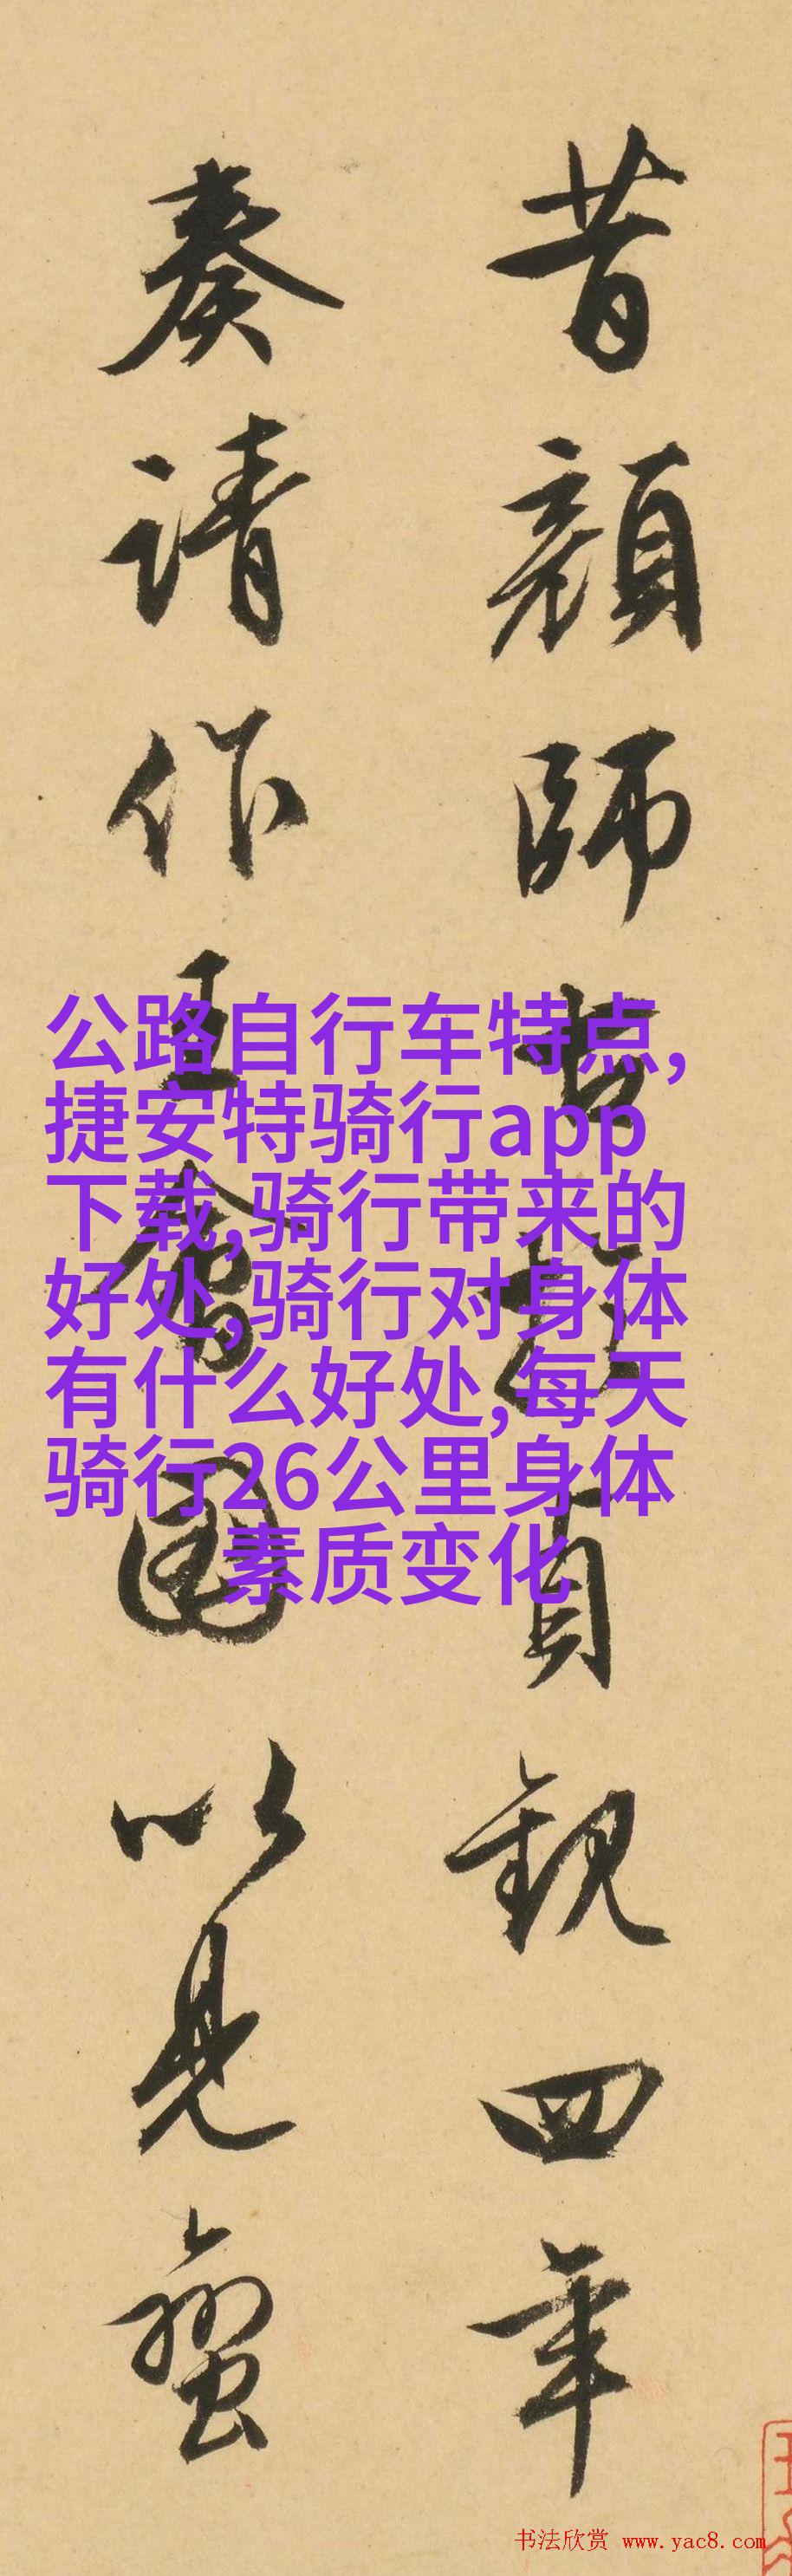 昔顏師古於貞觀四年
奏請作王會圖以見蠻
公路自行车特点,
捷安特骑行app
下载,骑行带来的
好处,骑行对身体
有什么好处,每天
骑行26公里身体
素质变化
书法欣赏 www.yac8.com